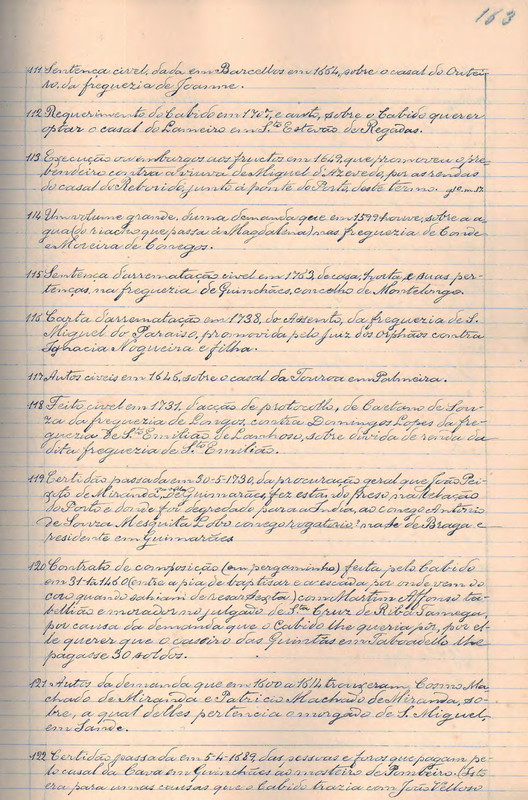 163
111 Sentença civel, dada em Barcellos em 1664, sobre o casal do Outei-
ro, da freguezia de Joanne.
112 Requerimento do Cabido em 1707, e auto, sobre o Cabido querer
optar o casal do Lameiro em S.ta Estevão de Regadas.
113 Execução ou embargos aos fructos em 1649, que promoveu o pre-
bendeiro contra a viuva de Miguel d'Azevedo, por as rendas
do casal do Reborido, junto á ponte de Porto, deste termo.
114 Um volume grande, duma demanda que em 1599 houve, sobre a a
gua (do riacho que passa á Magdalena) nas freguezia de Conde
e Moreira de Conegos.
115 Sentença d'arrematação civel em 1753, de casa, horta e suas per-
tenças, na freguezia de Guinchães, concelho de Montelongo.
116 Carta d'arrematação em 1738, do Assento, da freguezia de S.
Miguel do Paraiso, promovida pelo Juiz dos Orphãos contra
Ignacia Nogueira e filha.
117 Autos civeis em 1646, sobre o casal da Touroa em Palmeira.
118 Feito civel em 1731, d'acção de protocollo, de Caetano de Sou-
za da freguezia de Longos, contra Domingos Lopes da fre-
guezia de S.to Emilião de Lanhoso, sobre divida de renda da
dita freguezia de S.to Emilião.
119 Certidão passada em 30-5-1730, da procuração geral que João Pei-
xoto de Miranda, de Guimarães, fez estando preso, na Relação
do Porto e donde foi degredado para a India, ao conego Antonio
de Souza Mesquita Lobo conego rogatorio na sé de Braga e
residente em Guimarães
120 Contrato de composição (em pergaminho) feita pelo Cabido
em 31-12-1460 (entre a pia de baptisar e a escada por onde vem do
coro quando sahiam de resar Sexta) com Martim Affonso ta-
bellião e morador no julgado de S.ta Cruz de Riba Tamega,
por causa da demanda que o Cabido lhe queria pôr, por el-
le querer que o caseiro das Quintas em Taboadello lhe
pagasse 30 soldos.
121 Autos da demanda que em 1600 a 1614 trouxeram Cosmo Ma-
chado de Miranda e Patricio Machado de Miranda, so-
bre, a qual delles pertencia o morgado de S. Miguel,
em Sande.
122 Certidão passada em 5-4-1689, das pessoas e foros que pagam pe-
lo casal da Cava em Guinchães ao mosteiro de Pombeiro. (Isto
era para umas causas que o Cabido trazia com João Velloso